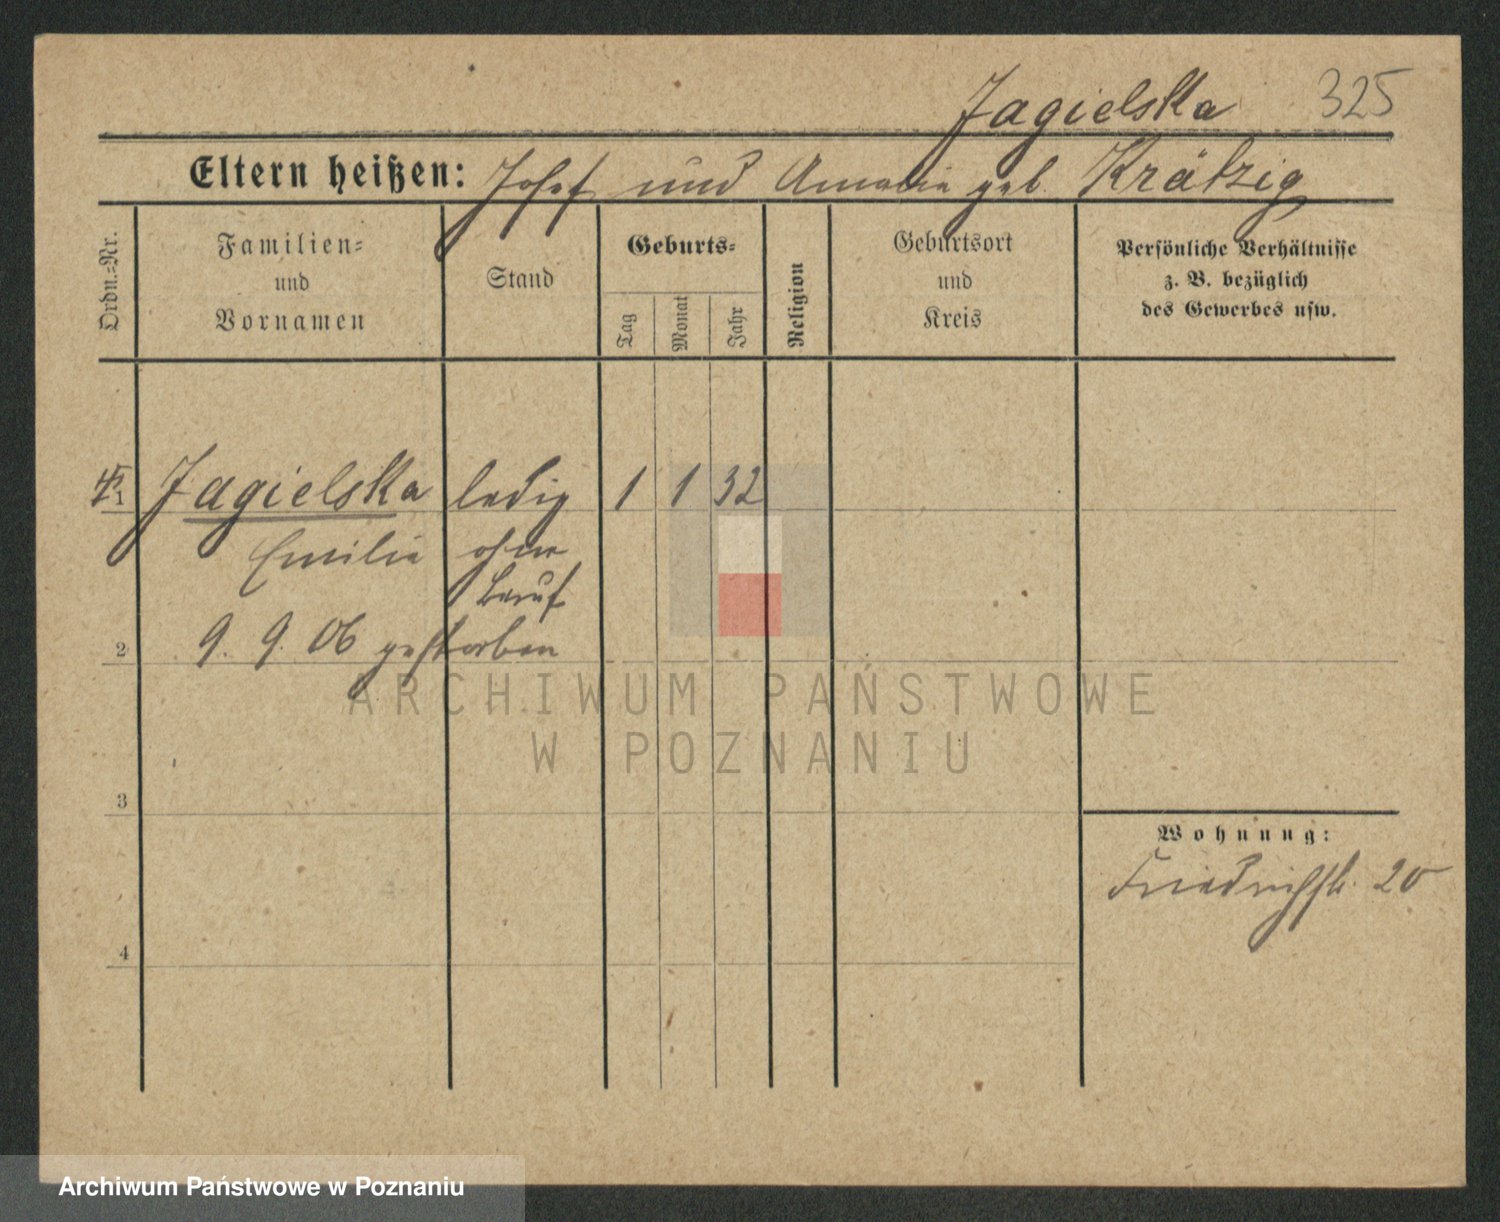 Jagielska 325
Eltern heißen: Josef und Amalie geb. Krätzig
Ordn.=Nr.
Familien=
und
Vornamen
Stand
Geburts=
Tag
Monat
Jahr
Religion
Geburtsort
und
Kreis
Persönliche Verhältnisse
z. B. bezüglich
des Gewerbes usw.
1 Jagielska ledig 1 1 32
Emilie ohne
Beruf
2 9. 9. 06 gestorben
ARCHIWUM PAŃSTWOWE
W POZNANIU
3
Wohnung:
Friedrichstr. 20
4
Archiwum Państwowe w Poznaniu